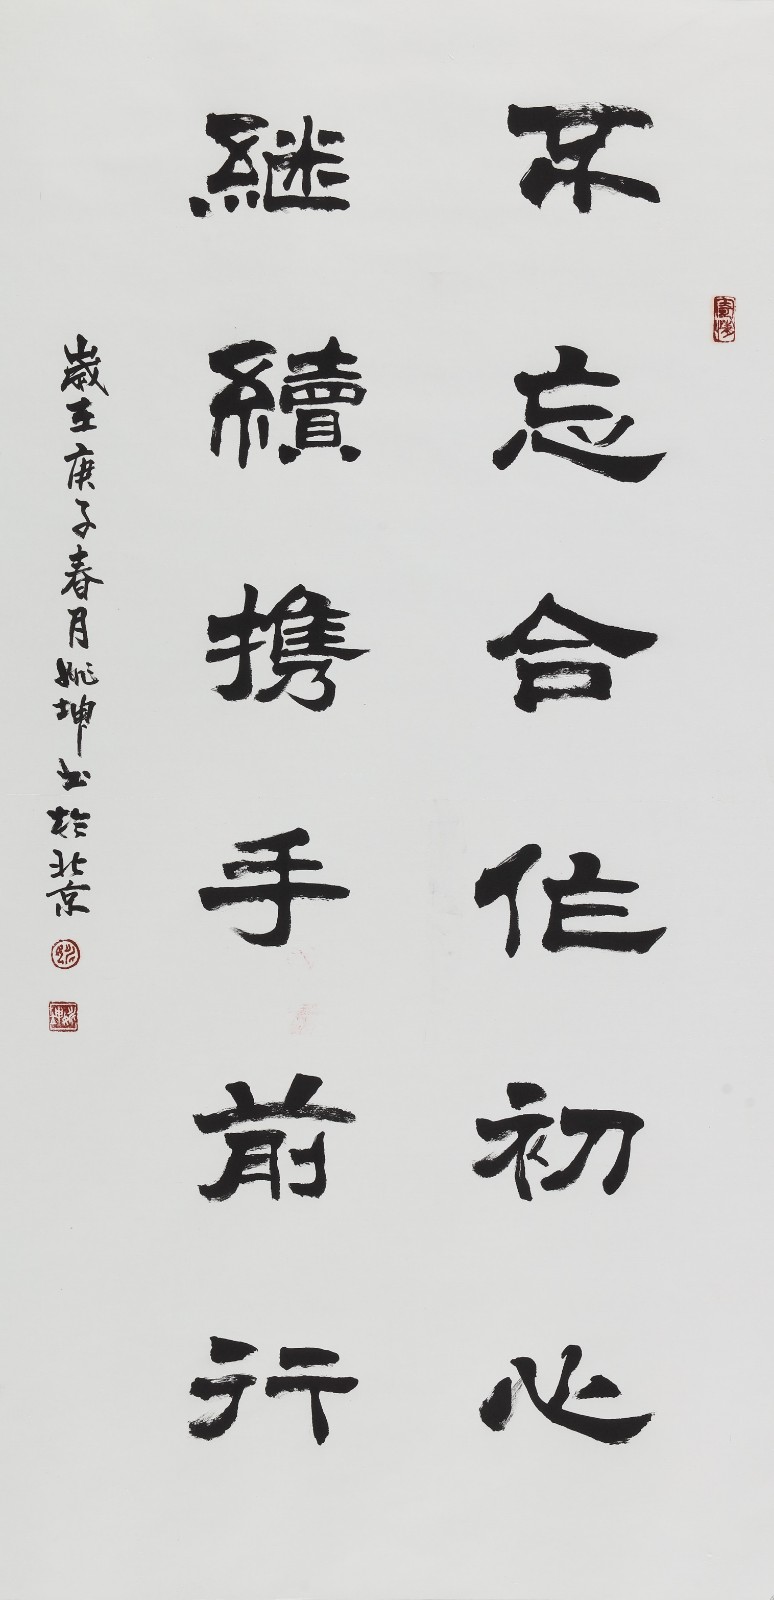 不忘合作初心
继續携手前行
歲在庚子春月姚坤书於北京